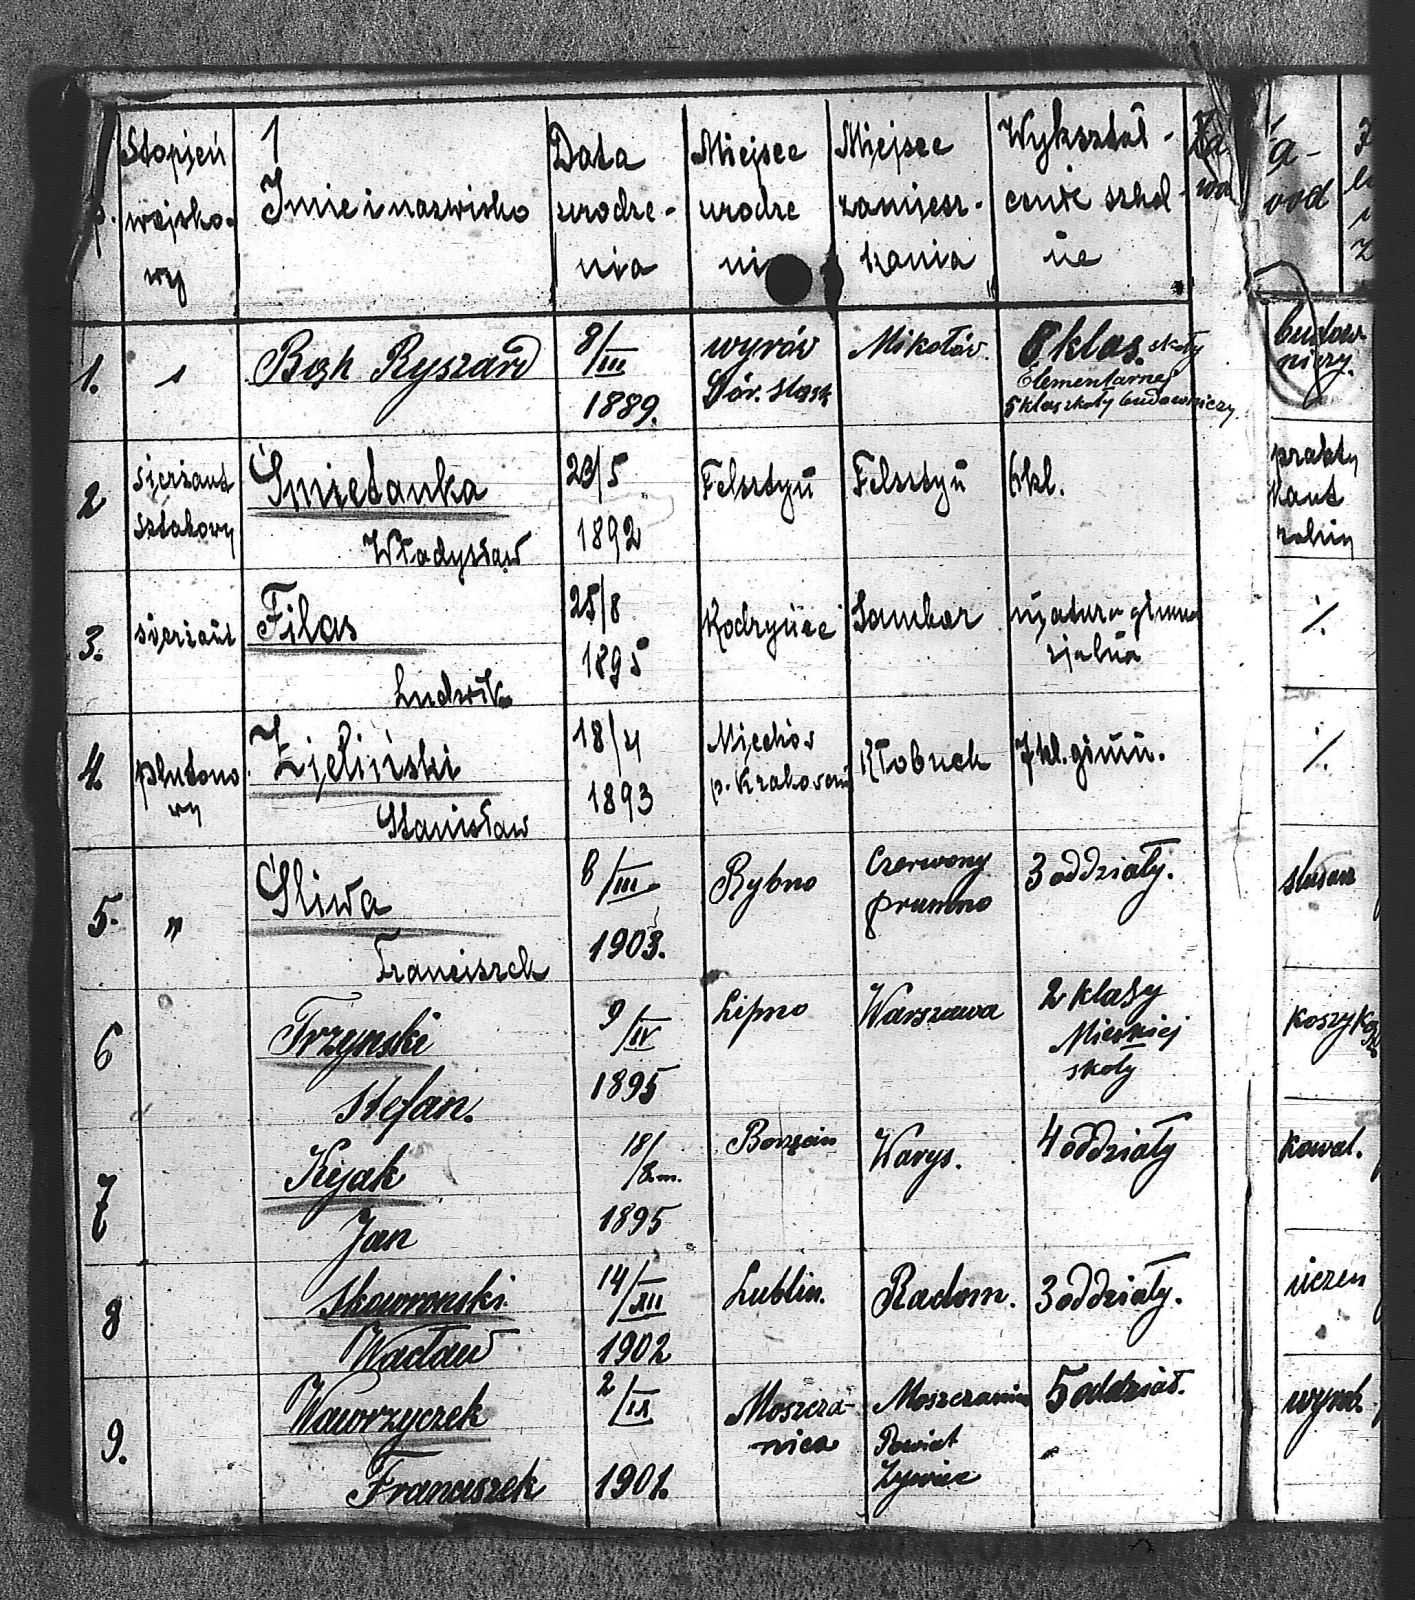 Stopień wojsko- wy
1 Imię i nazwisko
Data urodze- nia
Miejsce urodze ni
Miejsce zamiesz- kania
Wykształ- cenie szkol- ne
Za wód
1. Ryszard 8/III 1889. wyrów Gór. Slask Mikołów. klas. skoły Elementarnej 5 klas skoły budowniczy budow- niczy.
2 sierżant sztabowy Śmietanka Władysław 23/5 1892 Felsztyn Felsztyn 6 kl. prakty kant
3. sierżant Filas Ludwik 25/8 1895 Sambor matura gimna zjalna /.
4. plutono wy Zieliński Stanisław 18/4 1893 Miechów p. Krakowem Kłobuck 7 kl. gimn. /.
5. " Śliwa Franciszek 8/III 1903. Rybno Czerwony prumno 3 oddziały.
6 Trzynski Stefan. 9/IV 1895 Lipno Warszawa 2 klasy Mieskiej skoły
7 Kijak Jan 18/ 1895 Borzęcin Warys. 4 oddziały kowal.
8 Skawronski Wacław 14/XII 1902 Lublin. Radom. 3 oddziały. uczen
9. Waworzyczek Franciszek 2/IX 1901. Moszcza- nica Moszczanica Powiat Zywiec 5 oddział.